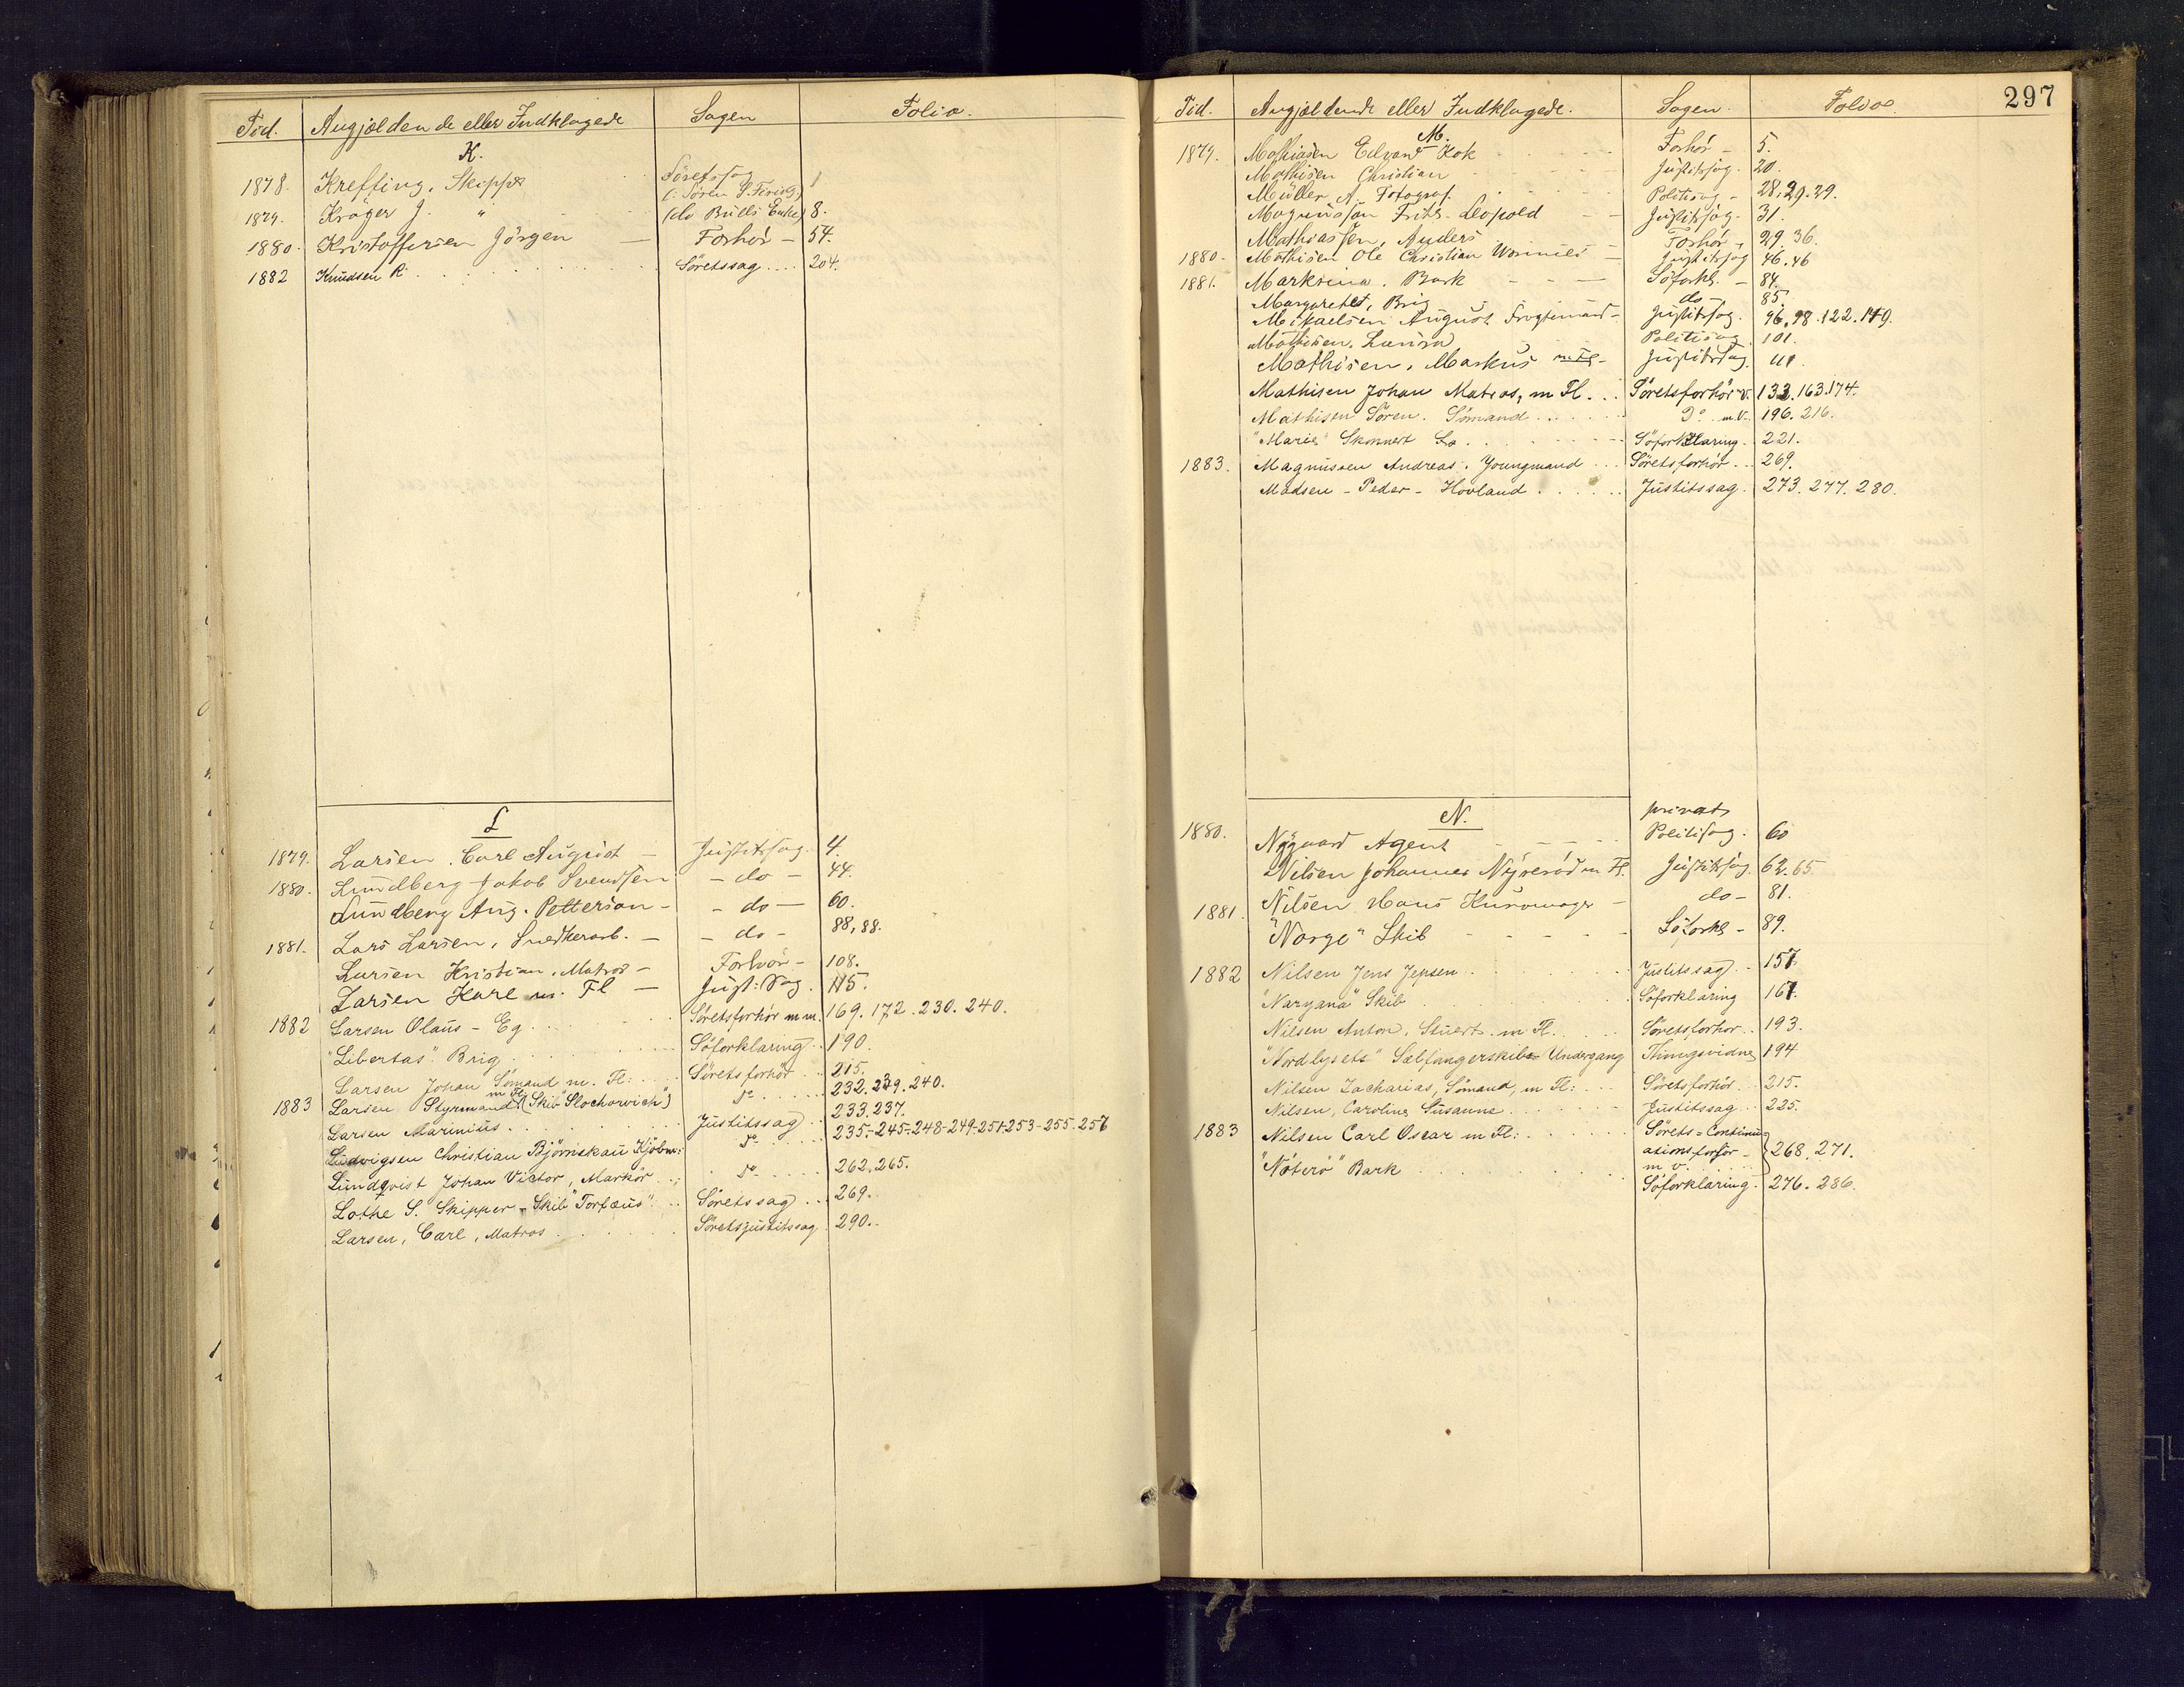 Tid. Angjældende eller Indklagede Sagen Folio.
K.
1878. Krefting, Skipper Søretssag 1
1879. Kröger J. " (do Bulls Enke) 8.
1880. Kristoffersen Jörgen — Forhör — 54.
1882 Knudsen R. . . . . Söretssag . . . . 204.
L
1879. Larsen, Carl August — Justitssag. 4.
1880. Lundberg Jakob Svendsen - do - 44.
Lundberg Aug. Petterson - - do — 60.
1881. Lars Larsen, Snedkerarb. — - do - 88, 88.
Larsen Kristian, Matros - Forhör - 108.
Larsen Karl m. Fl — Just: Sag. 115.
1882 Larsen Olaus - Eg . . . Söretsforhör m m. 169. 172. 230. 240.
"Libertas" Brig . . . . Söforklaring . . 190.
Larsen Johan Sömand m. Fl: . . . Söretsforhör . . 215.
1883 Larsen Styrmand m Fl (Skib "Slochowich") do . . . . 232. 239. 240.
Larsen Marinius . . . . Justitssag . . 233. 237.
Ludvigsen Christian Björnskau Kjöbm: do . . . 235.-245.-248-249-251-253-255.257
Lundqvist Johan Victor, Markör . . . do . . . . 262. 265.
Lothe S. Skipper - Skib "Torfæus" . . Söretssag . . . 269.
Larsen, Carl, Matros . . . . Söretsjustitssag. 290.
297
Tid. Angjældende eller Indklagede. Sagen. Folio
M.
1879. Mathiasen Edvard Kok Forhör - 5.
Mathisen Christian Justitssag. 20.
Müller A. Fotograf. Politisag - 28, 29. 29.
Magnussøn Fritz Leopold — Justitssag. 31.
Mathiassen, Anders Forhör - 29. 36.
1880. Mathisen Ole Christian — Justitssag 46. 46
1881. Marksina. Bark — Söforkl. - 84.
Margarethe, Brig do - 85.
Mikaelsen August - Justitssag. 96. 98. 122. 149.
Mathisen, Laura Politisag 101.
Mathisen, Markus m Fl - Justitssag 111.
Mathisen Johan Matros, m Fl. . . Söretsforhör m.v. 133. 163. 174.
Mathisen Sören. Sömand . . . . do m.V. 196. 216.
"Marie" Skonnert . . . . Söforklaring. 221.
1883. Magnussen Andreas, Youngmand . . . Söretsforhör . . . 269.
Madsen - Peder - Hovland . . . . . Justitssag. 273. 277. 280.
N.
privat
1880. Nygaard Agent - - - - Politisag. 60
Nilsen Johannes Nyseröd m Fl. Justitssag. 62. 65.
1881. Nilsen Hans Kurvmager - do - 81.
"Norge" Skib - - - - - Söforkl - 89.
1882 Nilsen Jens Jepsen . . . . Justitssag . . 157.
"Naryana" Skib . . . . Söforklaring 167.
Nilsen Anton, Stuert. m Fl. . . . Söretsforhör . . 193.
"Nordlysets" Sælfangerskibs Undergang Thingsvidne 194
Nilsen Zacharias, Sömand, m Fl: . . . Söretsforhör . . . 215.
Nilsen, Caroline Susanne . . . . Justitssag . . 225.
1883 Nilsen Carl Oscar m Fl: . . . . Sörets = Continu=
ationsforhör - m v. . . . } 268. 271.
"Nöterö" Bark . . . . Söforklaring. 276. 286.